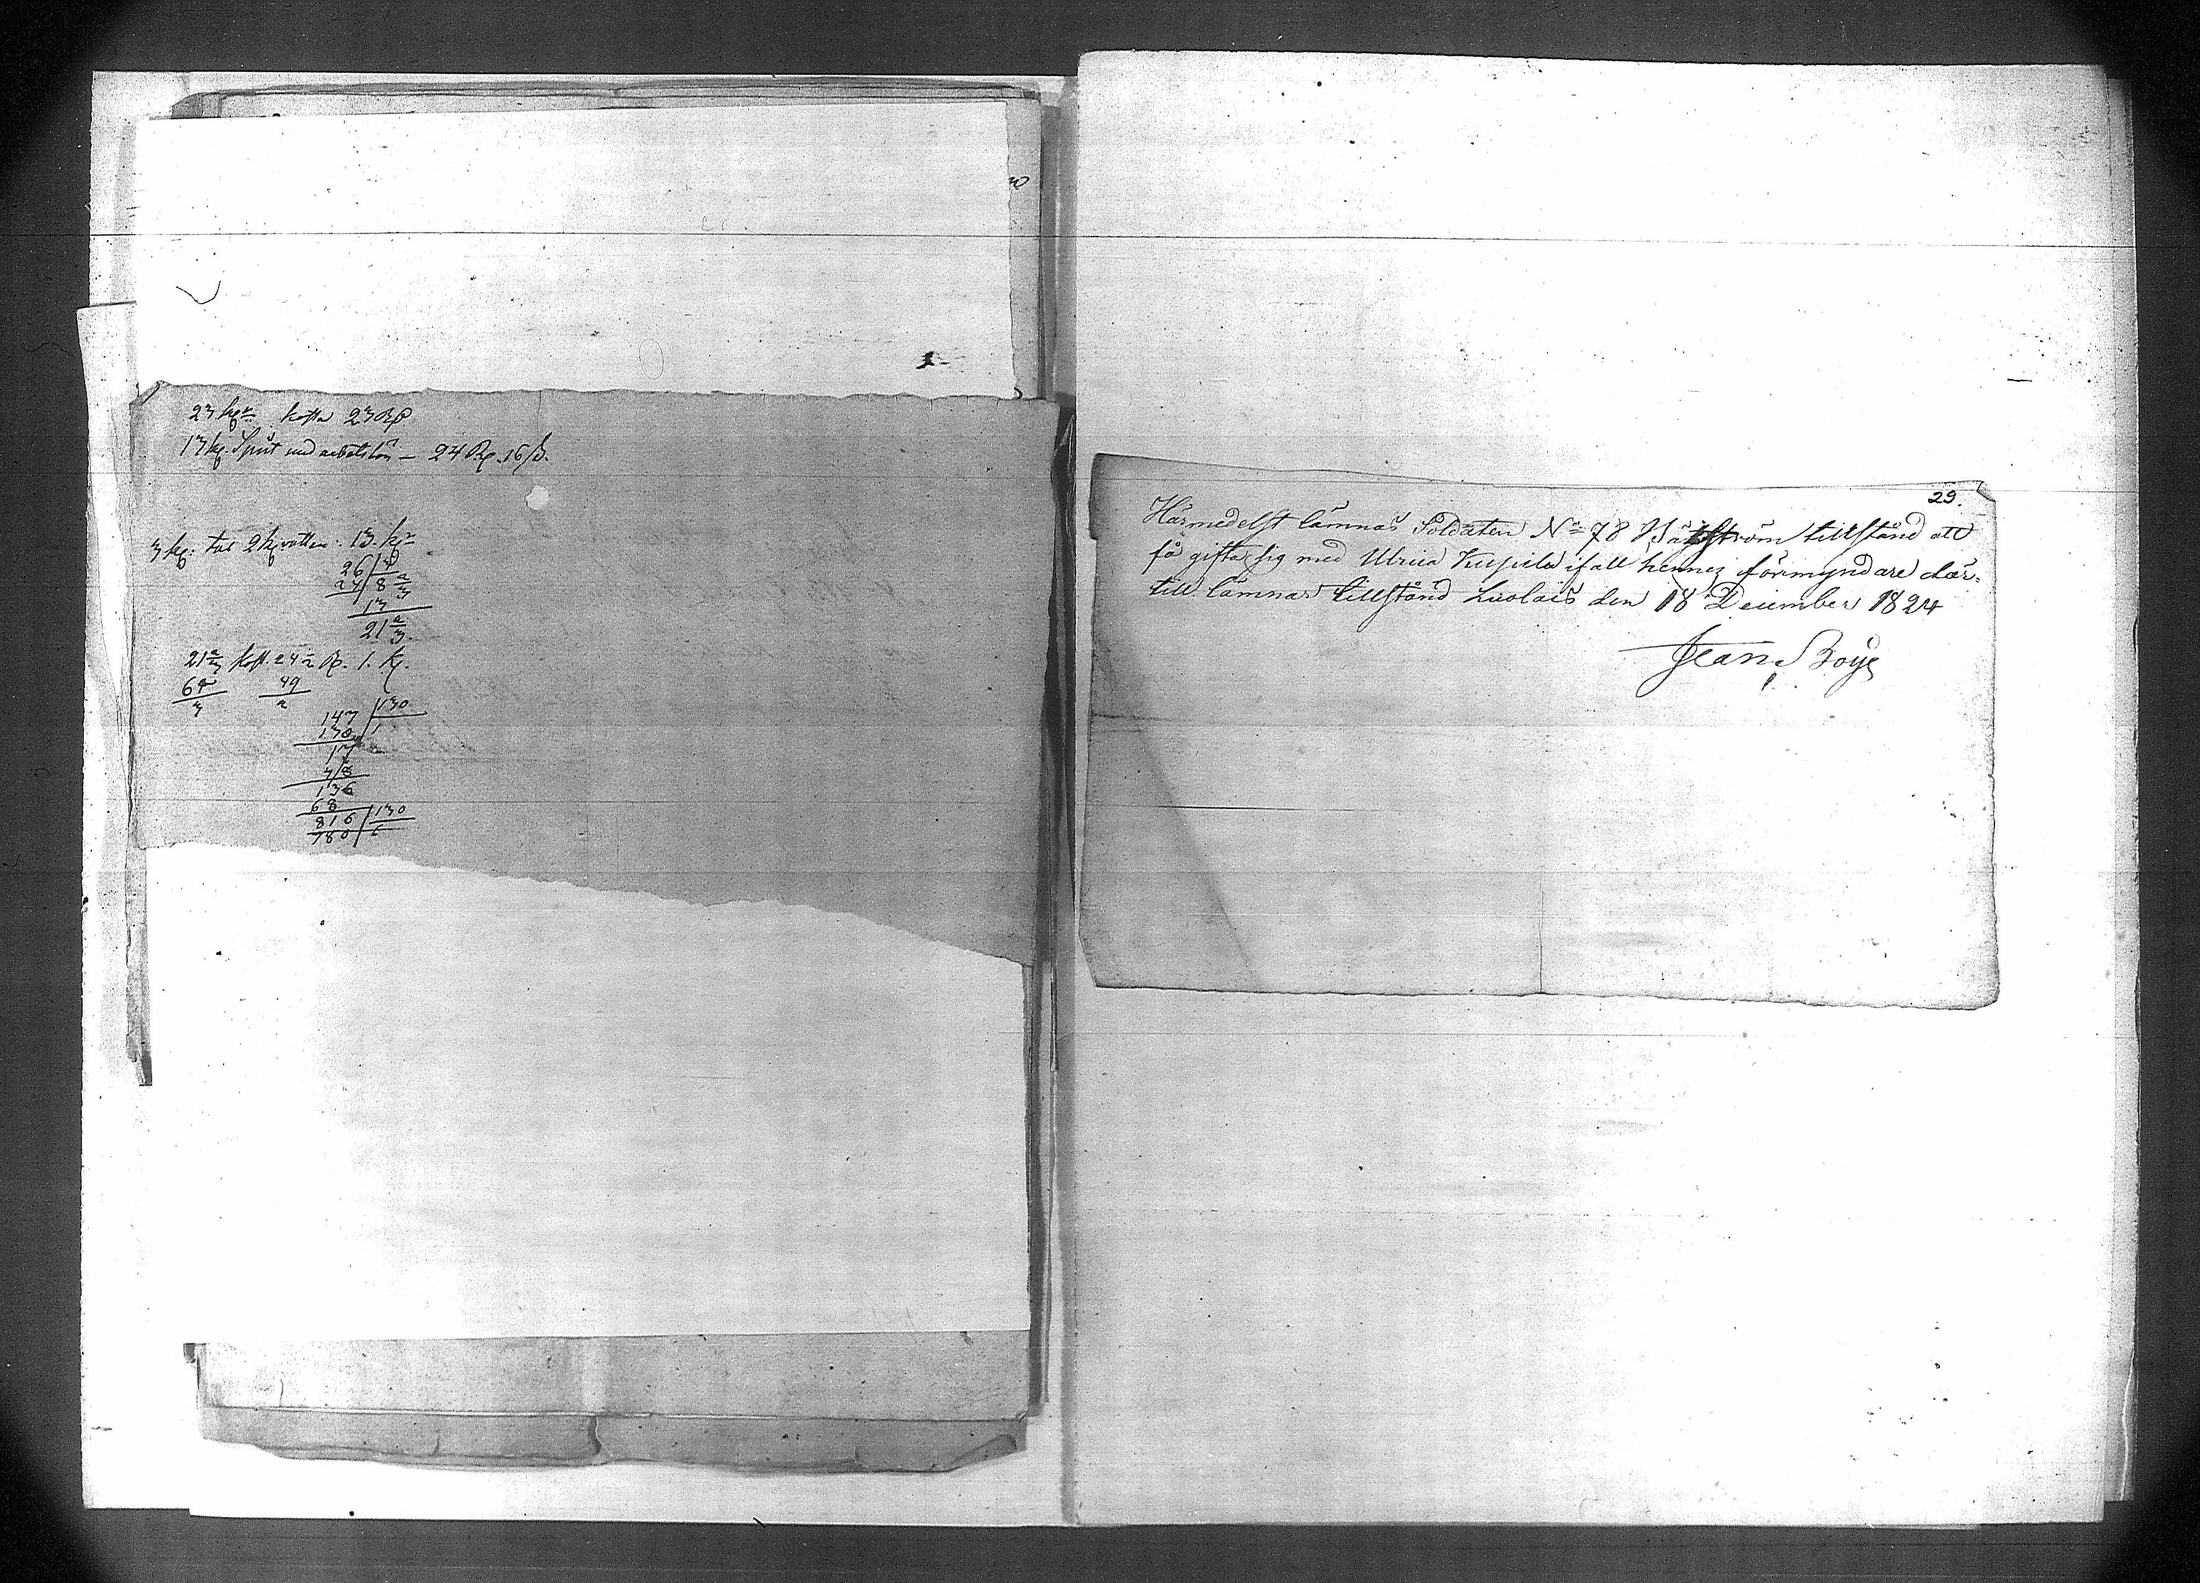 23 kpr kosta 23 Rp
13 kp. Sprit med arbetslön — 24 Rp. 16 s.
3 kp: tar 2 kp vatten: 13. kpr
26 | 3
24 | 8 2/3
13
21 2/3
21 2/3 kost. 24 1/2 Rp. 1. kp.
65/3 49/2
147 | 130
130 | 1
17
48
136
68
816 | 130
780 | 6
29.
Härmedelst lämnas Soldaten No 78 tillstånd att
få gifta sig med Ulrica Kupila ifall hennes förmyndare där-
till lämnar tillstånd Luolais den 18 December 1824
Jean Boije